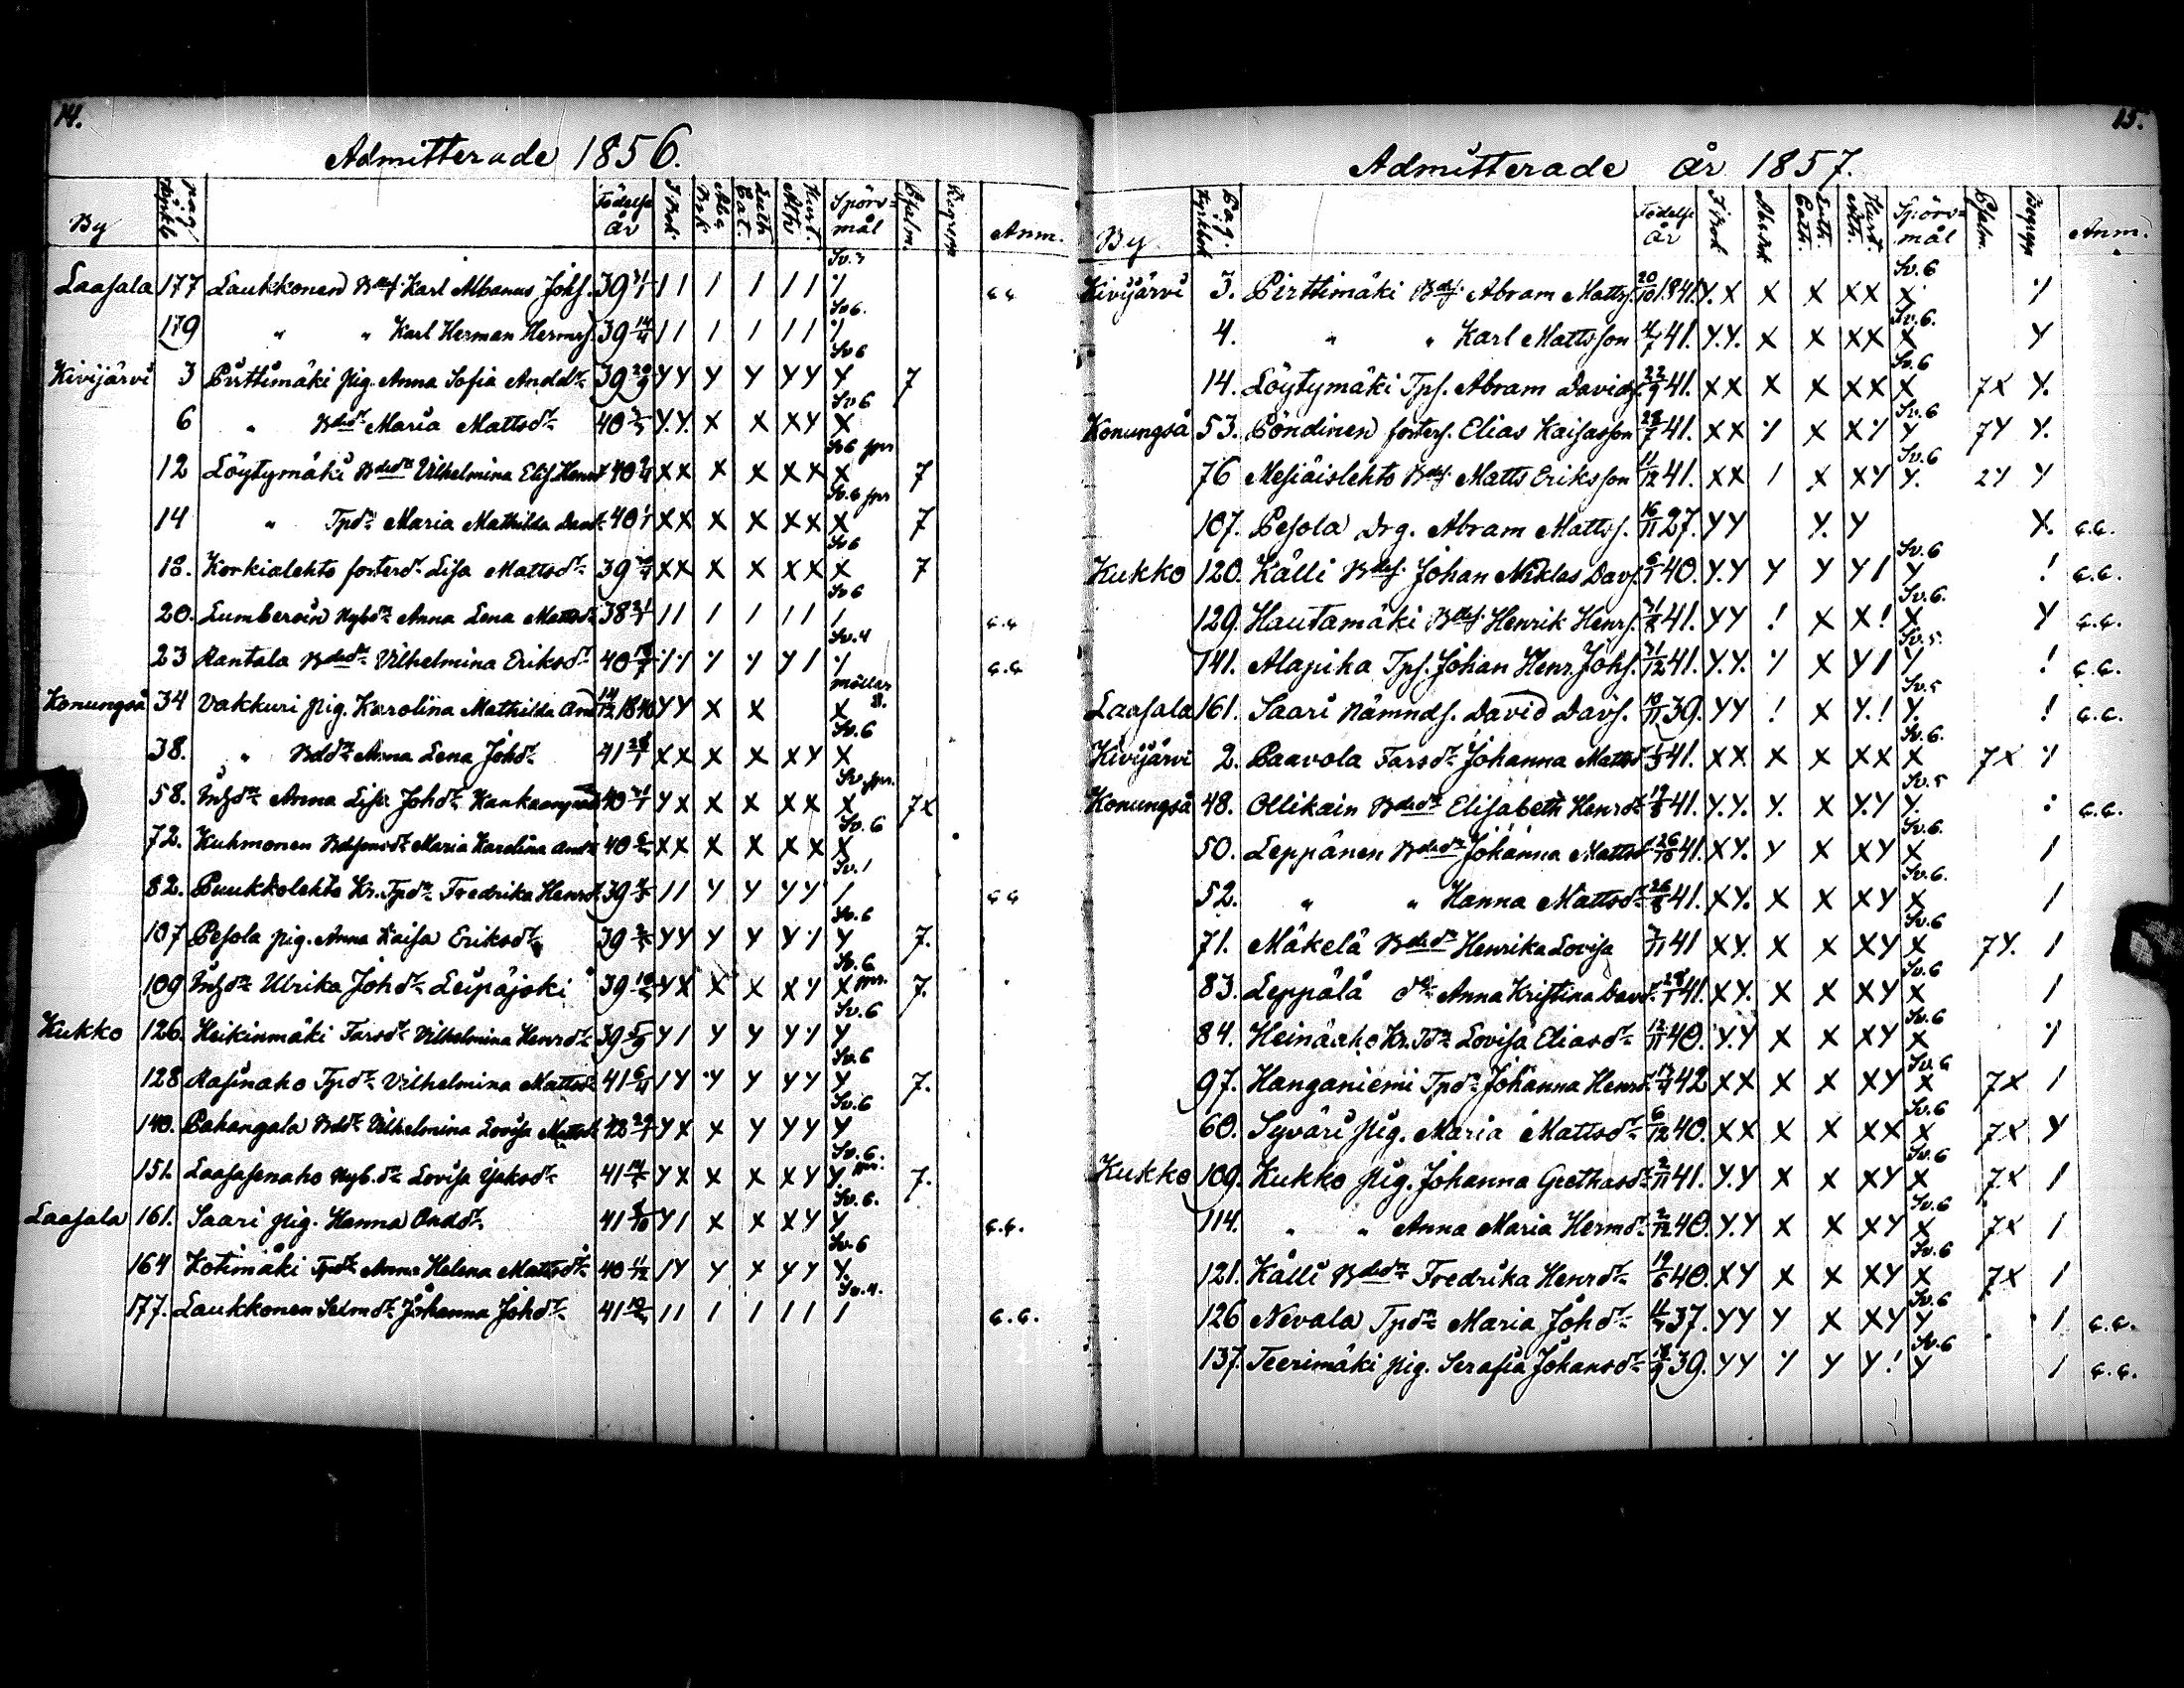 14.
Admitterade 1856.
By Pag. i Kyrkb. Födelse år I Bok Abc Bok Luth Cat. Hust. Ath. Spörs-mål Psalm. Begrepp Anm.
Laasala 177 Laukkonen Bdes. Karl Albanus Johs. 39 / / / / / / Sv. 3
179 " " Karl Herman Hermss. 39 14/4 / / / / / / Sv 6.
Kivijärvi 3 Pirttimäki pig. Anna Sofia Anddr 39 29/9 Y Y Y Y Y Y Sv 6 Y 7
6 " Bdedr Maria Mattsdr 40 Y. Y. X X X Y Sv 6 X
12 Löytymäki Bdedr Vilhelmina Elis. Henr 40 X X X X X X Sv 6 X 7
14 " Tpdr Maria Mathilda Davdr 40 X X X X X X Sv. 6 X 7
18. Korkialehto fosterdr Lisa Mattsdr 39 X X X X X X Sv 6 X 7
20. Lumberoin Nybdr Anna Lena Mattsdr 38 / / / / / / Sv 6 /
23 Rantala Bdedr Vilhelmina Eriksdr 40 Y Y Y / Sv. 4
Konungså 34 Vakkuri pig. Karolina Mathilda And 14/12 1840 Y Y X X X
38. " Bddr Anna Lena Johdr 41 X X X X X Y Sv. 6 X
58. Inhdr Anna Lisa Johdr Kankaanpää 40 Y X X X X X X 7 X
72. Kuhmonen Maria Karolina And 40 X X X X X X Sv. 6 X
82. Puukkolehto Kr. Tpdr Fredrika Henrdr 39 / / Y Y Y Y Sv. 1 /
107 Pesola pig. Anna Kaisa Eriksdr 39 Y Y Y Y Sv. 6 Y 7.
109 Inhdr Ulrika Johdr Leipäjoki 39 Y X X X X Y Sv. 6 X 7.
Kukko 126. Heikinmäki Farsdr Vilhelmina Henrdr 39 5/9 Y / Y Y Sv. 6 Y
128 Rasinaho Tpdr Vilhelmina Mattsdr 41 6/4 / Y Y Y Y Y Sv. 6 Y 7.
140. Pahangala Bddr Vilhelmina Lovisa Mattsdr 42 Y X X Y Y Y Sv. 6 Y
151. Laasasenaho Nyb. dr Lovisa Jaksdr 41 Y X X X X Y Sv. 6. Y. 7.
Laasala 161. Saari pig. Hanna Anddr 41 Y / X X X Y Sv. 6. Y
164 Kotimäki Tpdr Anna Helena Mattsdr 40 11/12 / Y Y X Y Y Sv. 6 Y
177. Laukkonen Johanna Johdr 41 / / / / / / Sv. 4. /
15.
Admitterade år 1857.
By Pag. i Kyrkbok Födelse år I Bok Abc Bok Luth. Cath. Hust. Ath. Spörs-mål Psalm. Begrepp Anm.
Kivijärvi 3. Pirttimäki Bdes. Abram Mattss. 20/10 1841. Y. X X X X X Sv. 6 X
4. " " Karl Mattsson 4/7 41. Y. Y. X X X X Sv. 6. X Y
14. Löytymäki Tps. Abram Davids. 22/9 41. X X X X X X Sv. 6 X 7 X Y.
Konungså 53. Pöndinen fosters. Elias Kaisasson 28/7 41. X X X X Sv. 6 Y 7 Y Y.
76 Mesiäislehto Bdes. Matts Eriksson 11/12 41. X X / X X Y Sv. 6 Y. 2 Y Y
107. Pesola Drg. Abram Mattss. 16/11 27. Y Y Y. Y Y.
Kukko 120. Källi Bdes. Johan Niklas Davs. 6/1 40. Y. Y Y Y Y / Sv. 6 Y !
129. Hautamäki Bdes. Henrik Henrs. 41. Y Y ! X X ! Sv. 6. X Y
141. Alapiha Tps. Johan Henr. Johs. 31/12 41. Y. Y. X Y / Sv. 5. Y !
Laasala 161. Saari Nämnds. David Davs. 10/11 39. Y Y ! X Y. ! Sv. 5 Y. !
Kivijärvi 2. Paavola Farsdr Johanna Mattsd 41. X X X X X X Sv. 6. X 7 X
Konungså 48. Ollikain Bdedr Elisabeth Henrdr 41. Y. Y. Y. X Y. Y Sv. 5 Y.
50. Leppänen Bdedr Johanna Mattsd 26/10 41. X Y. Y X X Y Sv. 6. X /
52. " " Hanna Mattsdr 26/8 41. X Y. X X X Y Sv. 6. X /
71. Mäkelä Bdedr Henrika Lovisa 41 X Y. X X X Y Sv. 6 X 7 Y. /
83. Leppälä do Anna Kristina Davd. 28/1 41. X Y. X X X Y Sv. 6 X /
84. Heinäaho Kr. Tdr Lovisa Eliasdr 12/11 40. Y. Y X X X Y Sv. 6 X
97. Hanganiemi Tpdr Johanna Henrd. 42 X X X X X Y Sv. 6 X 7 X /
60. Syväri pig. Maria Mattsdr 6/12 40. X X X X X X Sv. 6 X 7 X Y
Kukko 109. Kukko pig. Johanna Grethasdr 2/11 41. Y. Y X X X Y Sv. 6 X 7. X /
114. " " Anna Maria Hermdr 2/12 40. Y. Y X X X Y Sv. 6 X 7 X /
121. Källi Bdedr Fredrika Henrdr 19/6 40. X Y X X X Y Sv. 6 X 7 X /
126 Nevala Tpdr Maria Johdr 37. Y Y Y X X Y Sv. 6 Y /
137. Teerimäki pig. Serafia Johansdr 18/9 39. Y Y Y Y ! Sv. 6 Y /